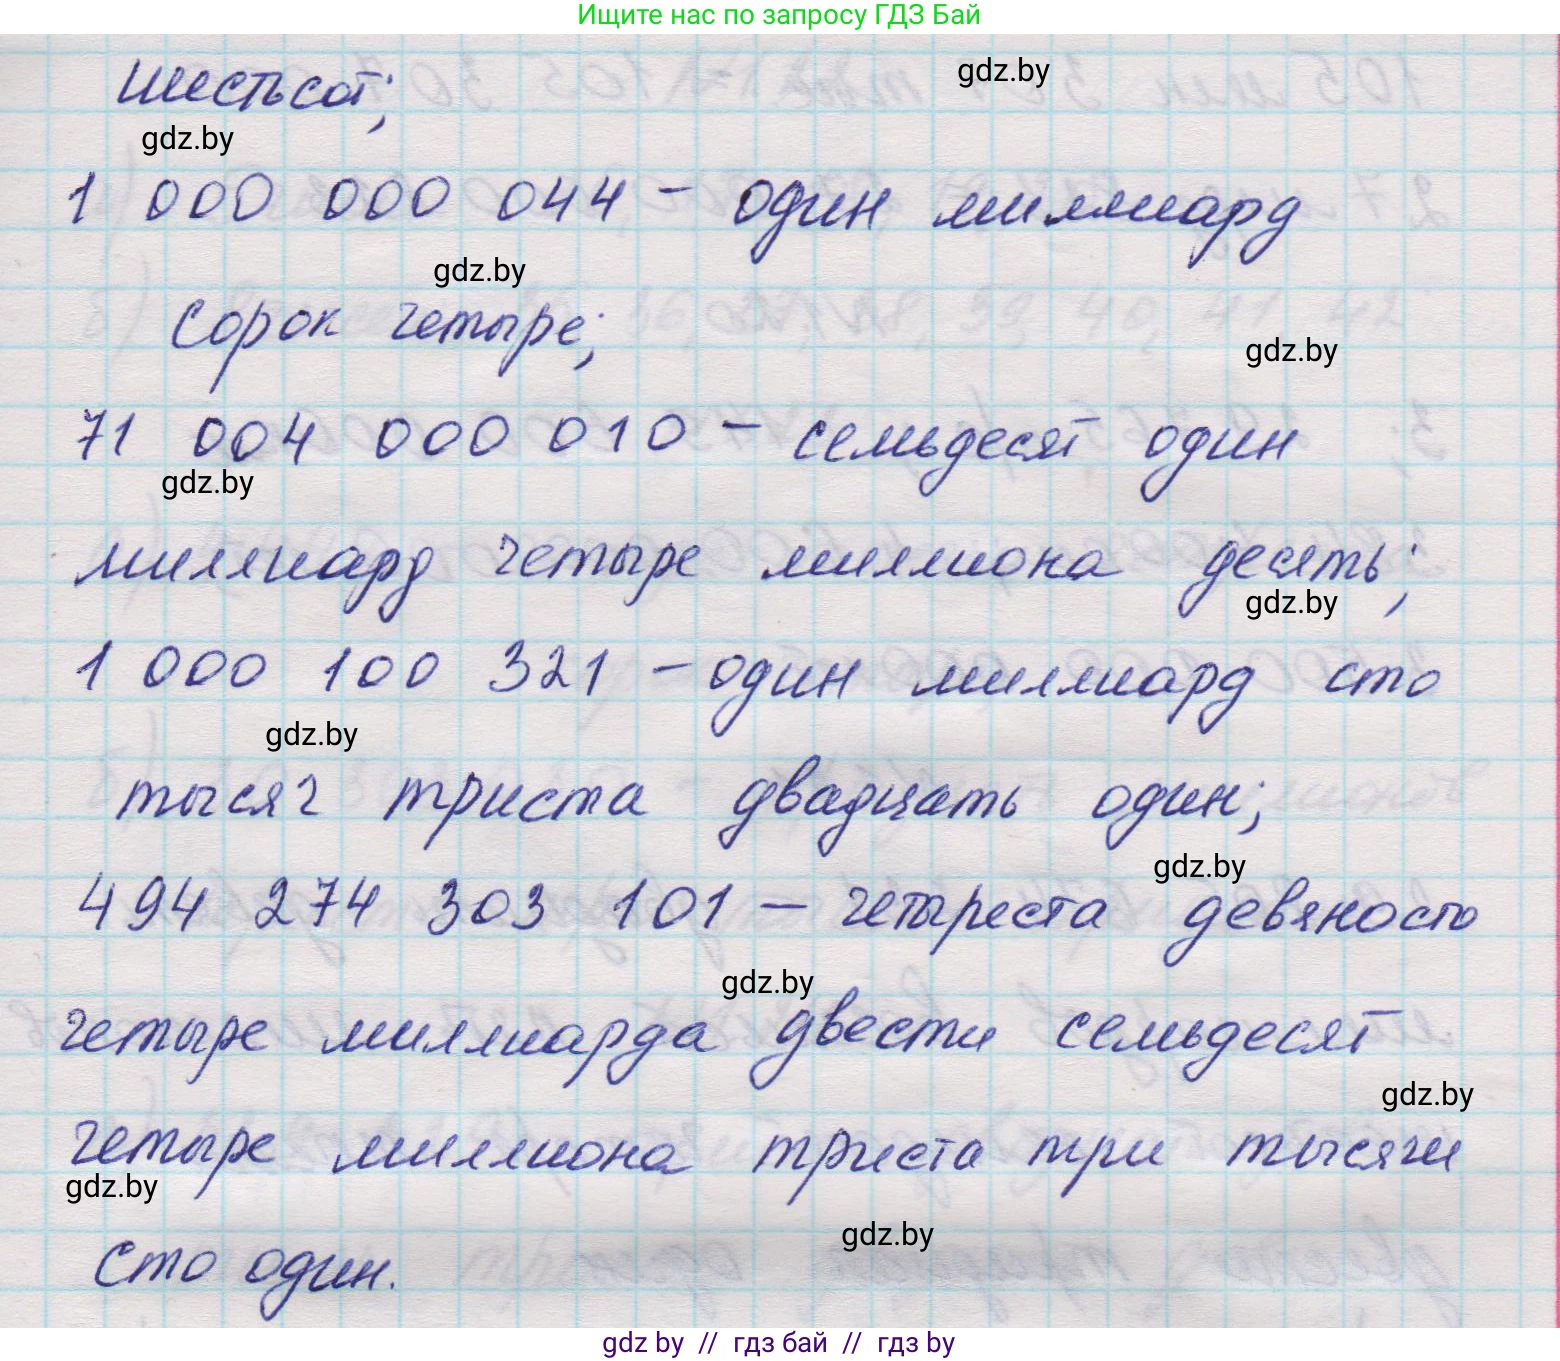 Ищите нас по запросу ГДЗ Бай
шестьсот;
gdz.by
gdz.by
1 000 000 044 – один миллиард
gdz.by
сорок четыре;
gdz.by
71 004 000 010 – семьдесят один
gdz.by
миллиард четыре миллиона десять;
gdz.by
1 000 100 321 – один миллиард сто
gdz.by
тысяч триста двадцать один;
gdz.by
494 274 303 101 – четыреста девяносто
gdz.by
четыре миллиарда двести семьдесят
gdz.by
четыре миллиона триста три тысячи
gdz.by
gdz.by
сто один.
gdz by // гдз бай // гдз by